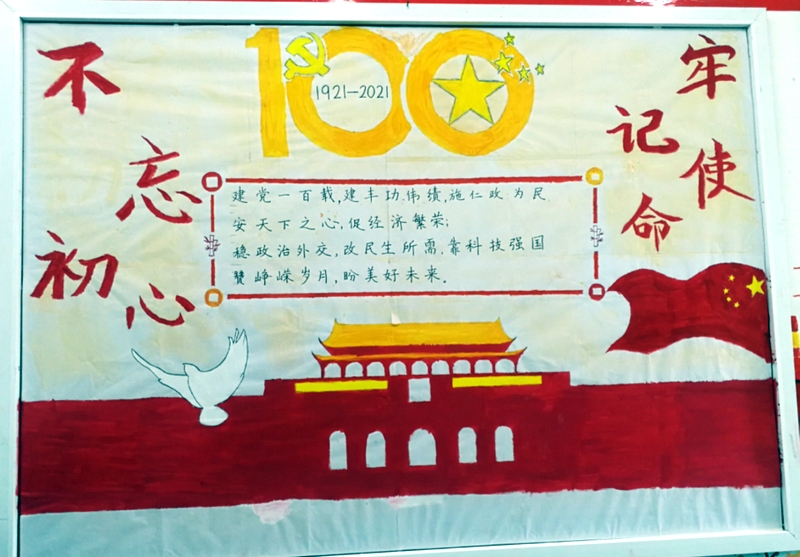 不忘初心
100
1921-2021
牢记使命
建党一百载,建丰功伟绩,施仁政为民
安天下之心,促经济繁荣;
稳政治外交,改民生所需,靠科技强国
赞峥嵘岁月,盼美好未来。